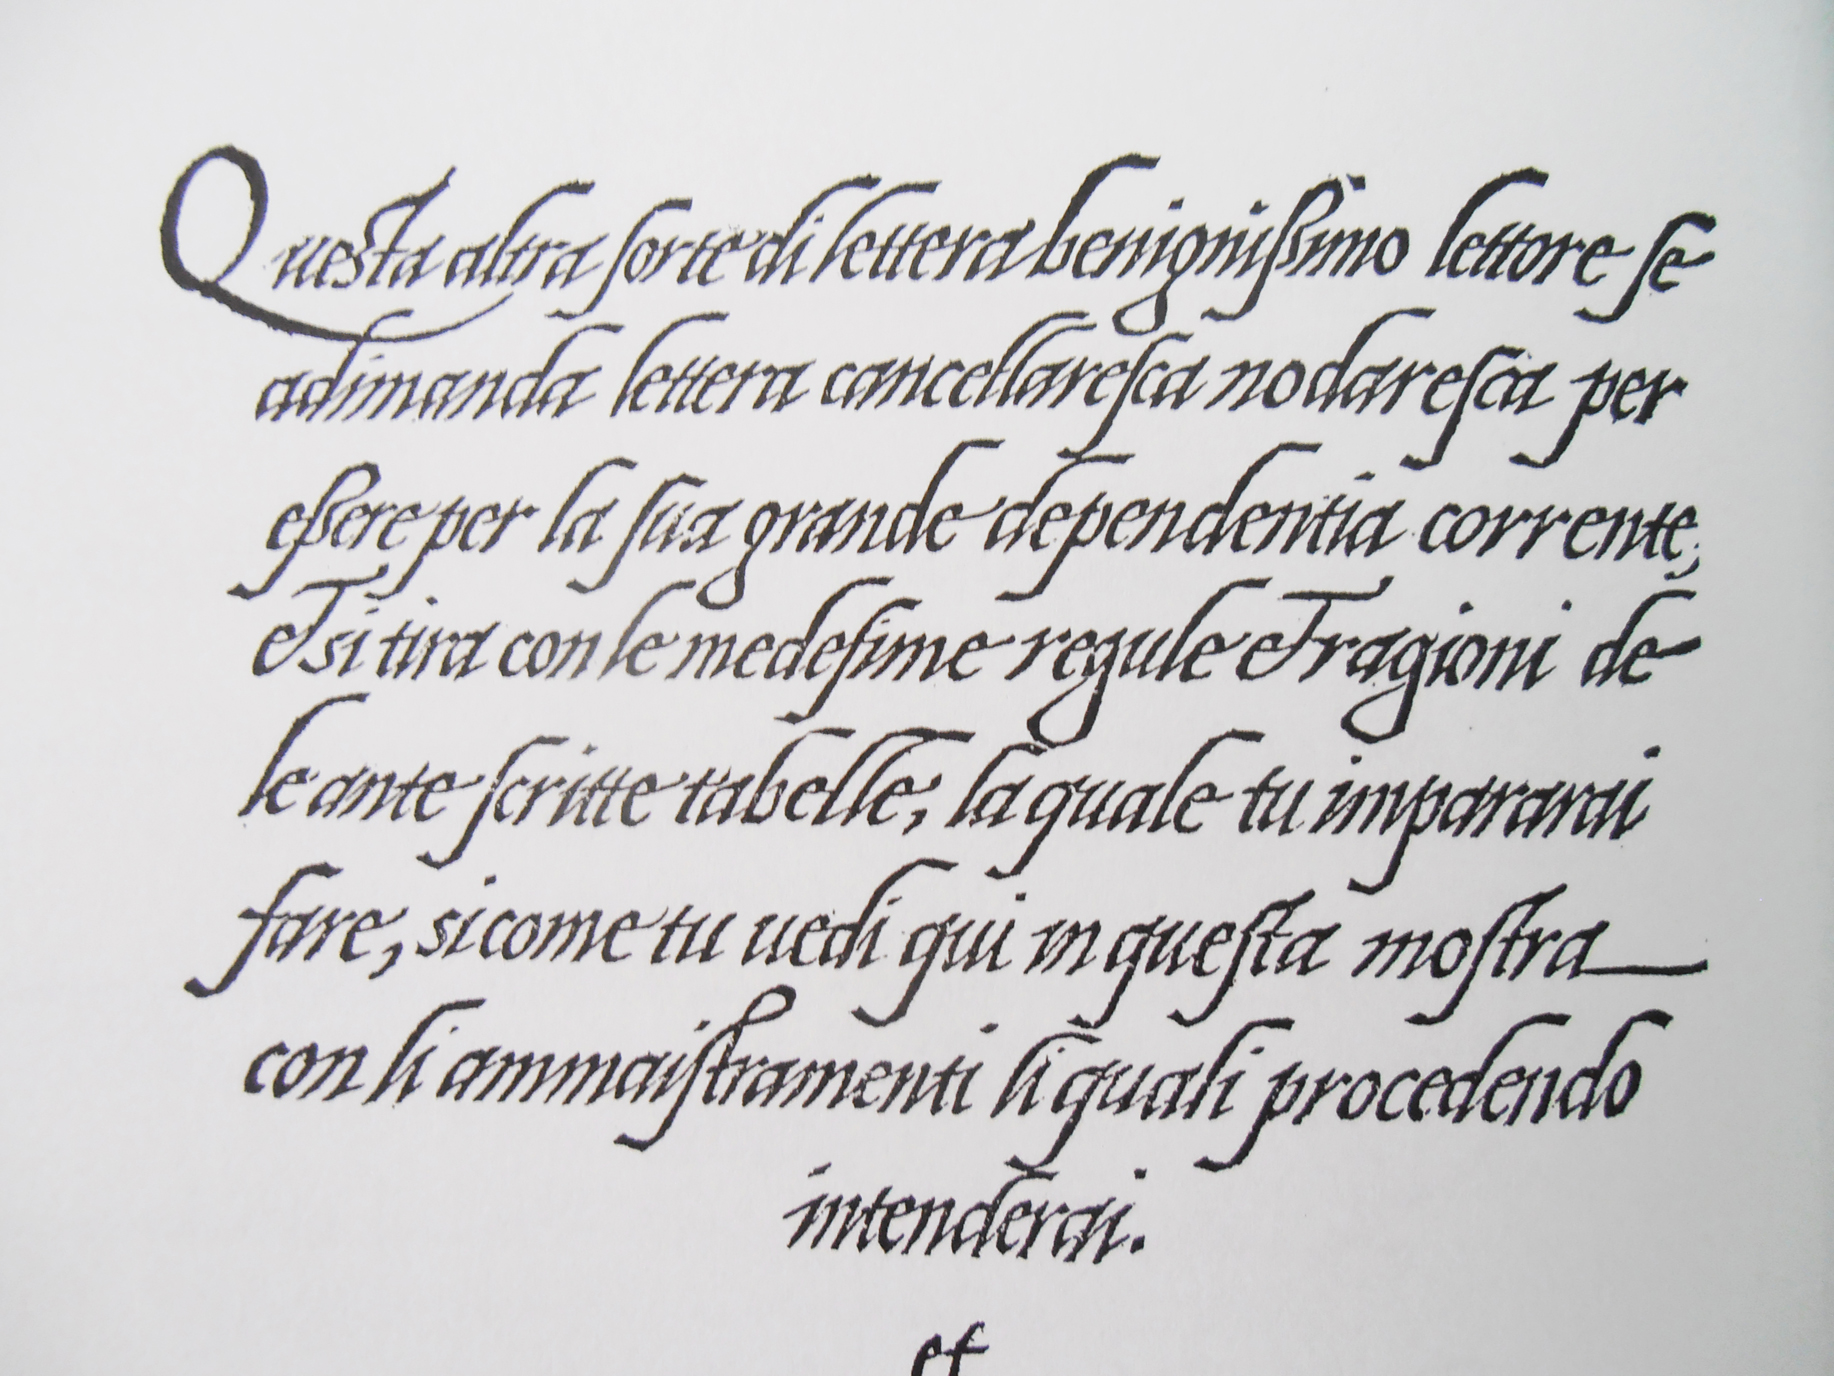 Questa altra sorte di lettera benignissimo lettore se
adimanda lettera cancellaresca nodaresca per
essere per la sua grande dependentia corrente,
et si tira con le medesime regule et ragioni de
le ante scritte tabelle, la quale tu impararai
fare, si come tu uedi qui in questa mostra
con li ammaistramenti li quali procedendo
intenderai.
et